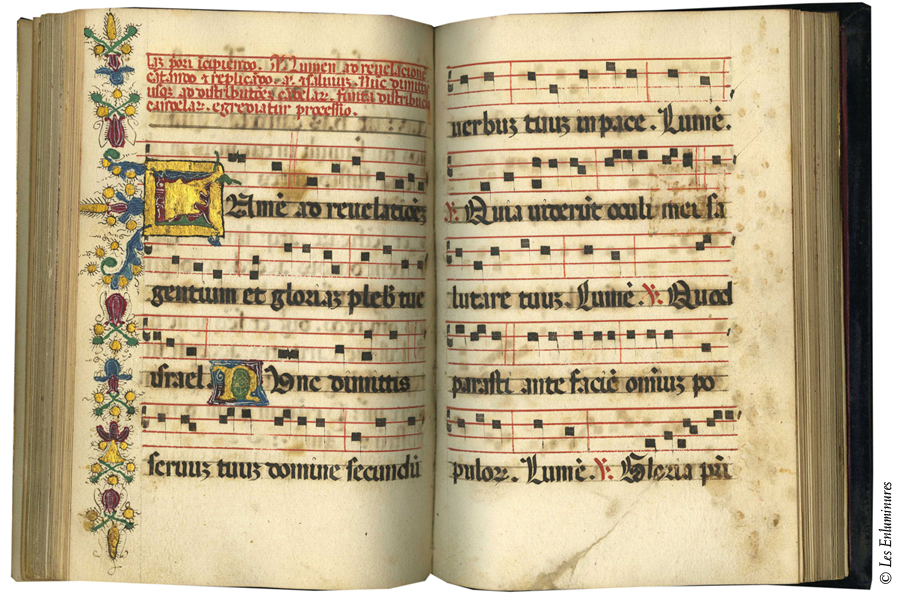 Lumen ad reuelacionē
cātando et replicādo
egrediatur processio.
Lumē ad reuelationē
gentium et gloriaz pleb̄ tue
israel. Nunc dimittis
seruuz tuuz domine secundū
uerbuz tuuz in pace. Lumē.
℣. Quia uiderūt oculi mei sa
lutare tuuz. Lumē. ℣. Quod
parasti ante faciē omīuz po
pulor. Lumē. ℣. Gloria pri
© Les Enluminures